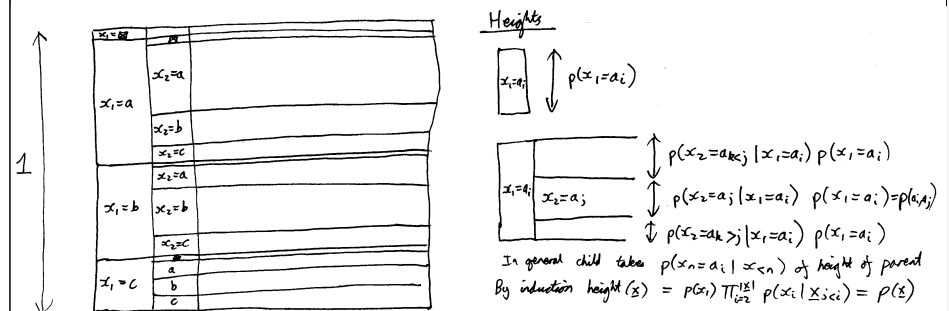 1
x₁=⊠
x₁=a
x₂=a
x₂=b
x₂=c
x₁=b
x₂=a
x₂=b
x₂=c
x₁=c
a
b
c
Heights
x₁=aᵢ
p(x₁=aᵢ)
x₁=aᵢ
x₂=aⱼ
p(x₂=aₖ<ⱼ | x₁=aᵢ) p(x₁=aᵢ)
p(x₂=aⱼ | x₁=aᵢ) p(x₁=aᵢ)=p(aᵢ,aⱼ)
p(x₂=aₖ>ⱼ | x₁=aᵢ) p(x₁=aᵢ)
In general child takes p(xₙ=aᵢ | x<ₙ) of height of parent
By induction height(x) = p(x₁) ∏ᵢ₌₂^|x| p(xᵢ | xⱼ<ᵢ) = p(x)